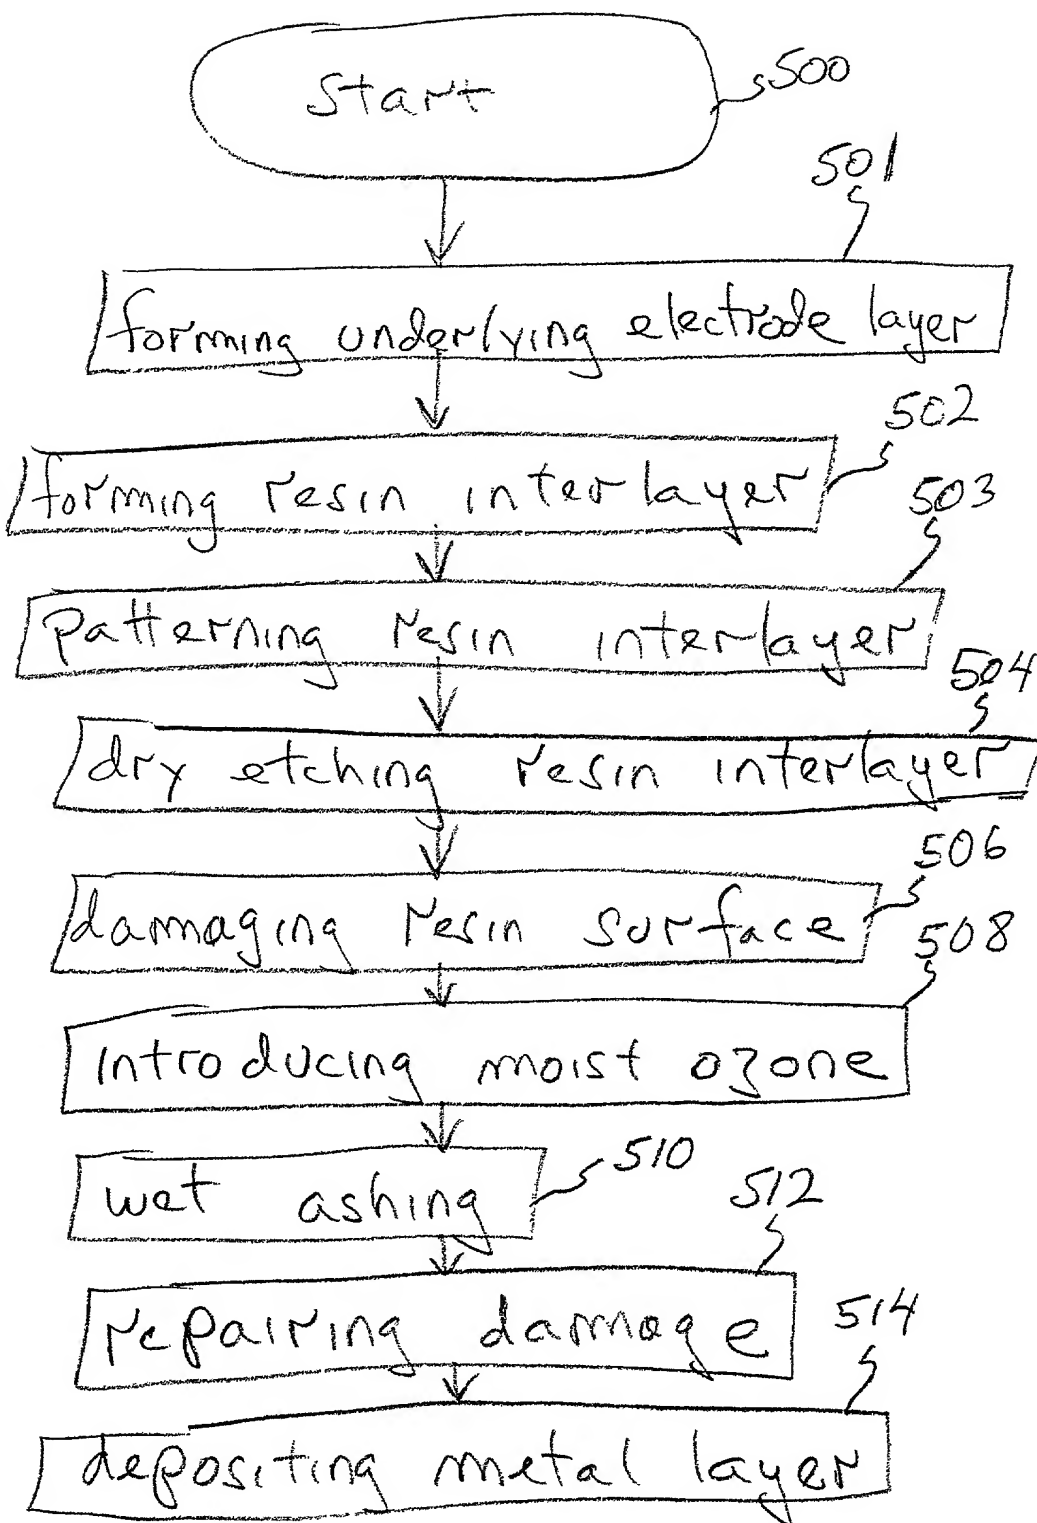 Start
500
501
forming underlying electrode layer
502
forming resin interlayer
503
patterning resin interlayer
504
dry etching resin interlayer
506
damaging resin surface
508
introducing moist ozone
wet ashing
510
512
repairing damage
514
depositing metal layer